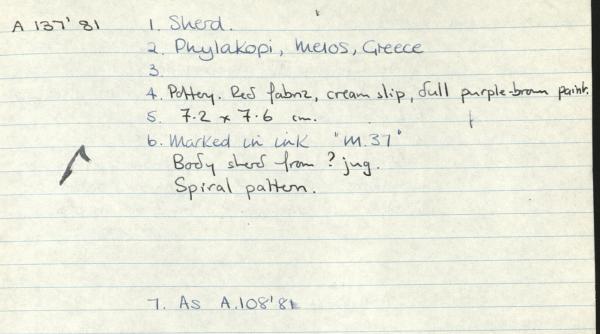 A 137'81 1. Sherd.
2. Phylakopi, Melos, Greece
3.
4. Pottery. Red fabric, cream slip, dull purple-brown paint.
5. 7.2 x 7.6 cm.
6. Marked in ink "M.37"
Body sherd from ? jug.
Spiral pattern.
7. As A.108'81